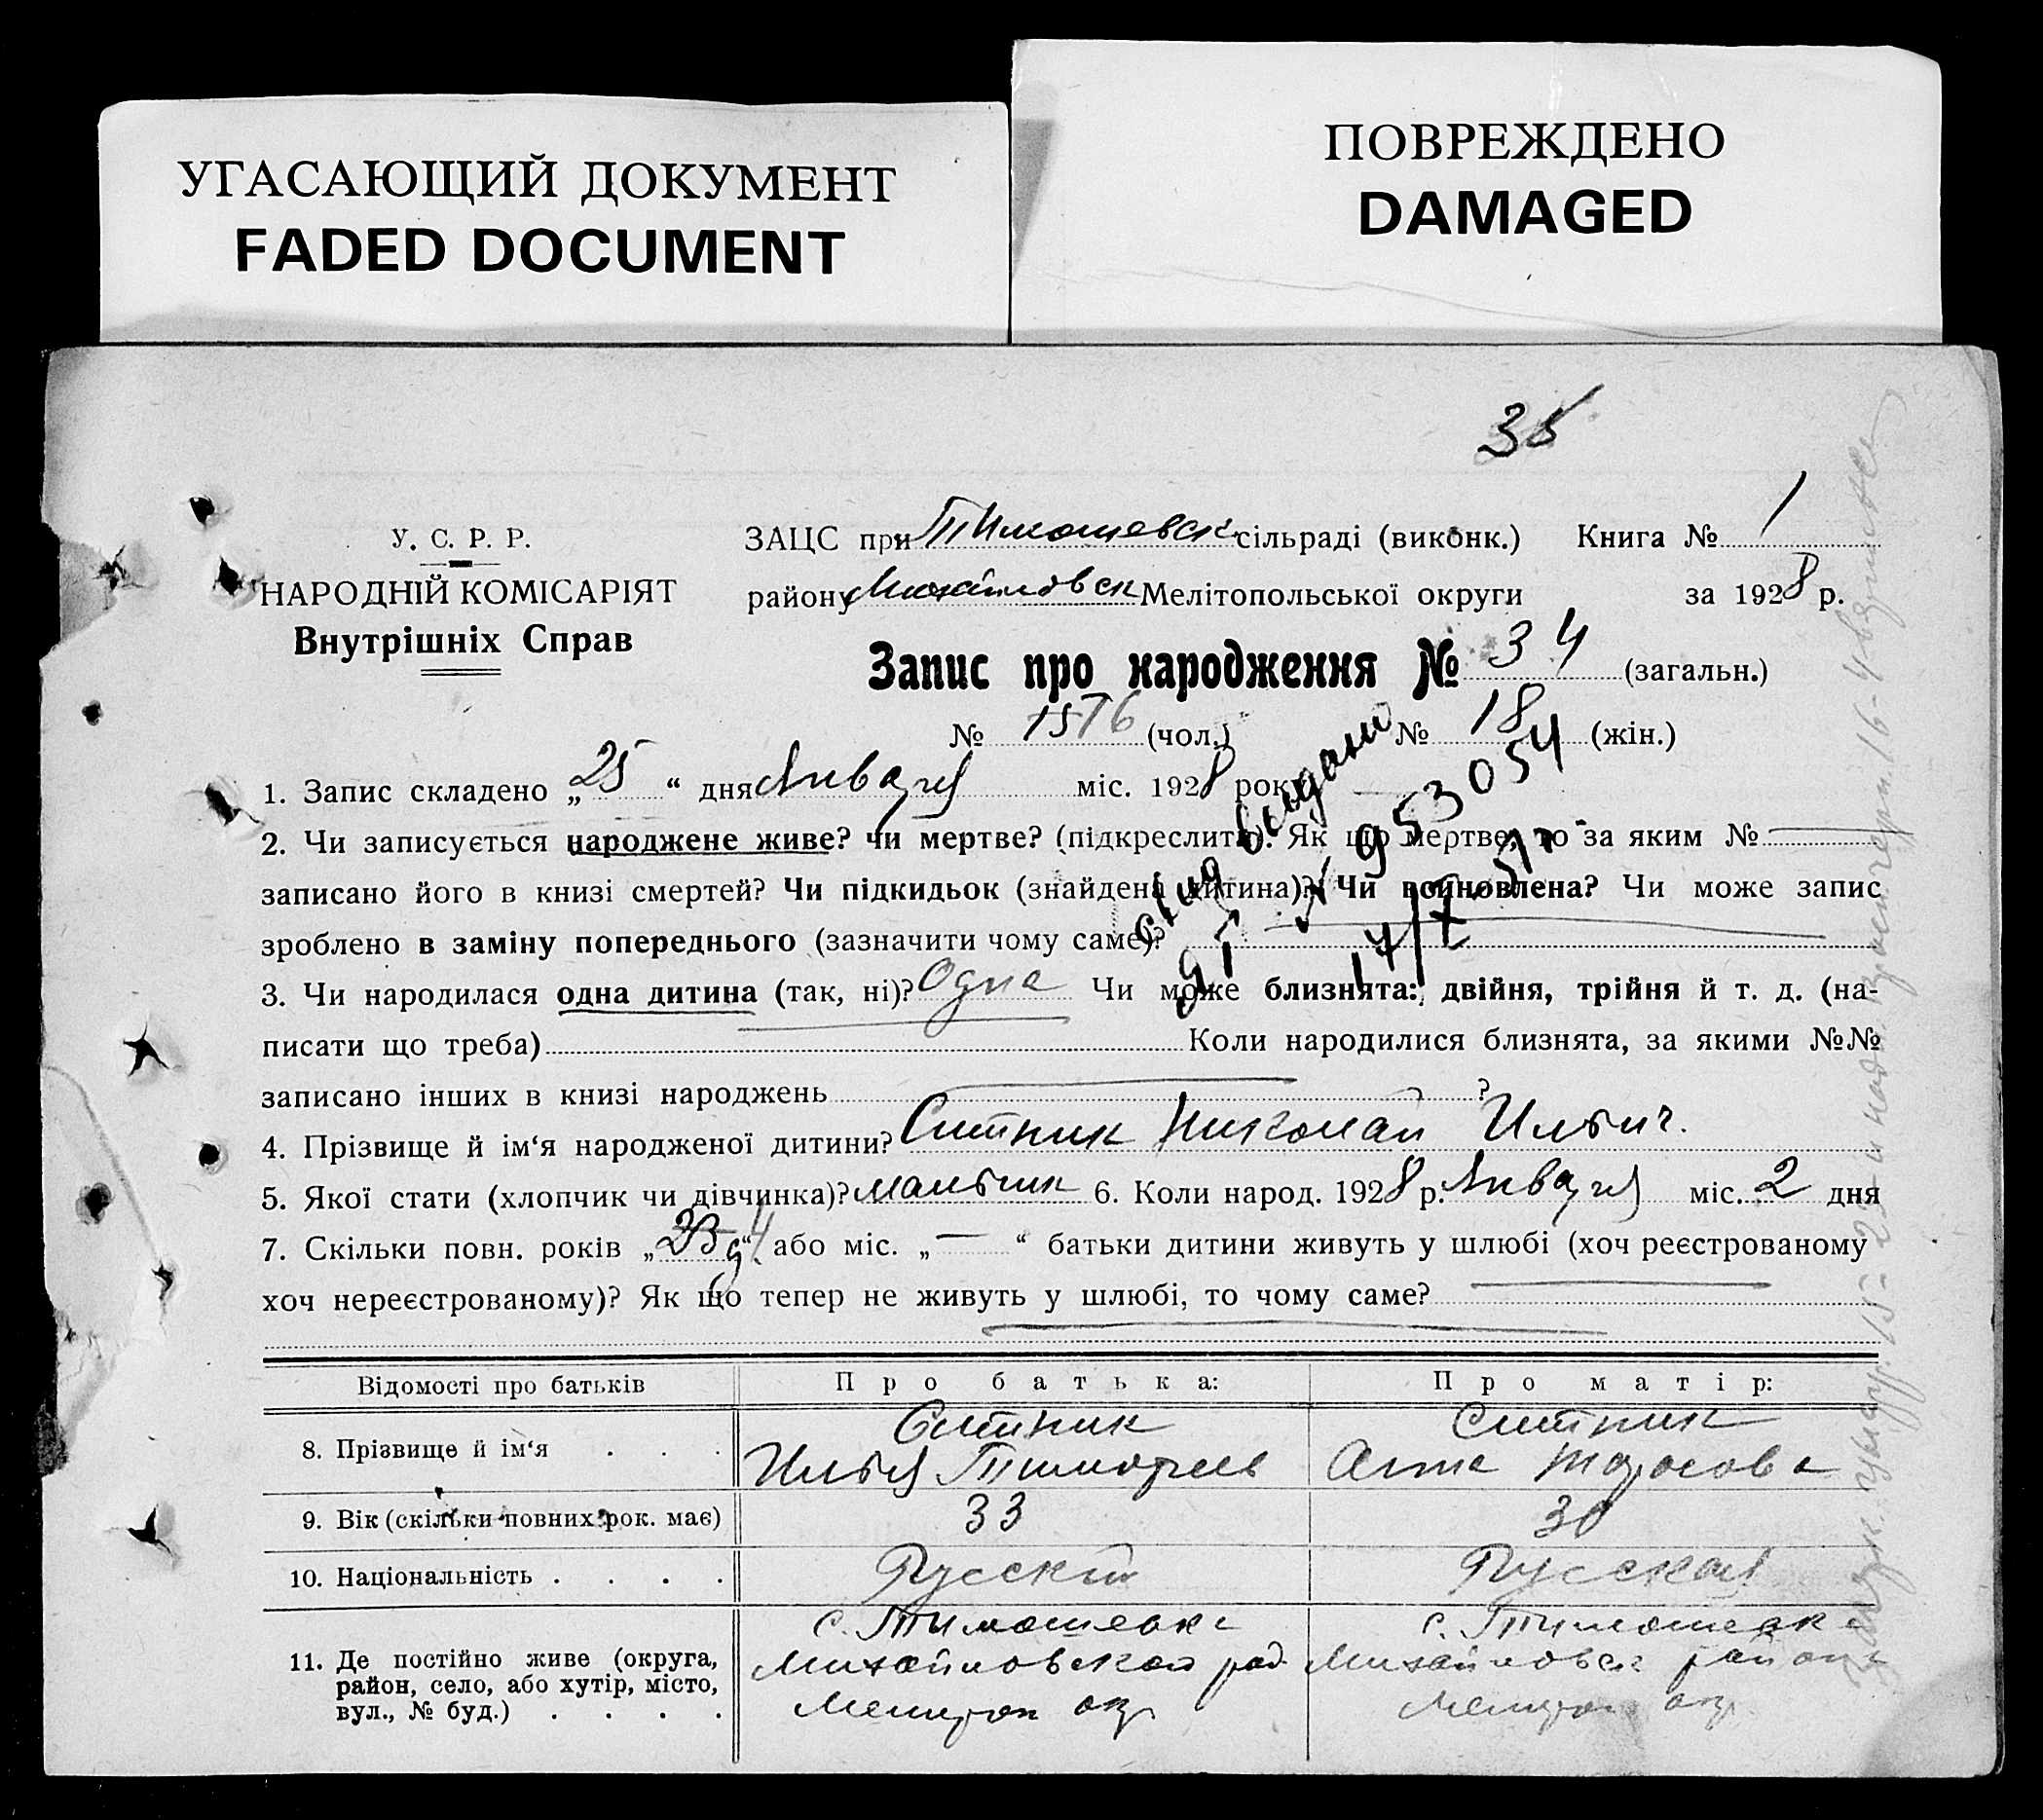 УГАСАЮЩИЙ ДОКУМЕНТ
FADED DOCUMENT
ПОВРЕЖДЕНО
DAMAGED
У. С. Р. Р.
НАРОДНІЙ КОМІСАРІЯТ
Внутрішніх Справ
ЗАЦС при Тимошевск сільраді (виконк.) Книга № 1
району Михайловск Мелітопольської округи за 1928 р.
Запис про народження № 34 (загальн.)
№ 16 (чол.) № 18 (жін.)
1. Запис складено „25“ дня Января міс. 1928 року
2. Чи записується народжене живе? чи мертве? (підкреслити). Як що мертве, то за яким №
записано його в книзі смертей? Чи підкидьок (знайдена дитина)? Чи поиновлена? Чи може запис
зроблено в заміну попереднього (зазначити чому саме)?
выдано
№ 953054
3. Чи народилася одна дитина (так, ні)? Одна Чи може близнята: двійня, трійня й т. д. (на-
писати що треба) Коли народилися близнята, за якими №№
записано інших в книзі народжень ?
4. Прізвище й ім‘я народженої дитини? Ситник Николай Ильич.
5. Якої стати (хлопчик чи дівчинка)? мальчик 6. Коли народ. 1928 р. Января міс. 2 дня
7. Скільки повн. років „ “ або міс. „—“ батьки дитини живуть у шлюбі (хоч реєстрованому
хоч нереєстрованому)? Як що тепер не живуть у шлюбі, то чому саме?
Відомості про батьків Про батька: Про матір:
8. Прізвище й ім‘я . . . Ситник Илья Тимофеев Ситник Анна Тарасова
9. Вік (скільки повних рок. має) 33 30
10. Національність . . . . Русский Русская
11. Де постійно живе (округа, район, село, або хутір, місто, вул., № буд.) . . . . с. Тимошевка Михайловского рай Мелитоп окр с. Тимошевка Михайловск района Мелитоп окр.